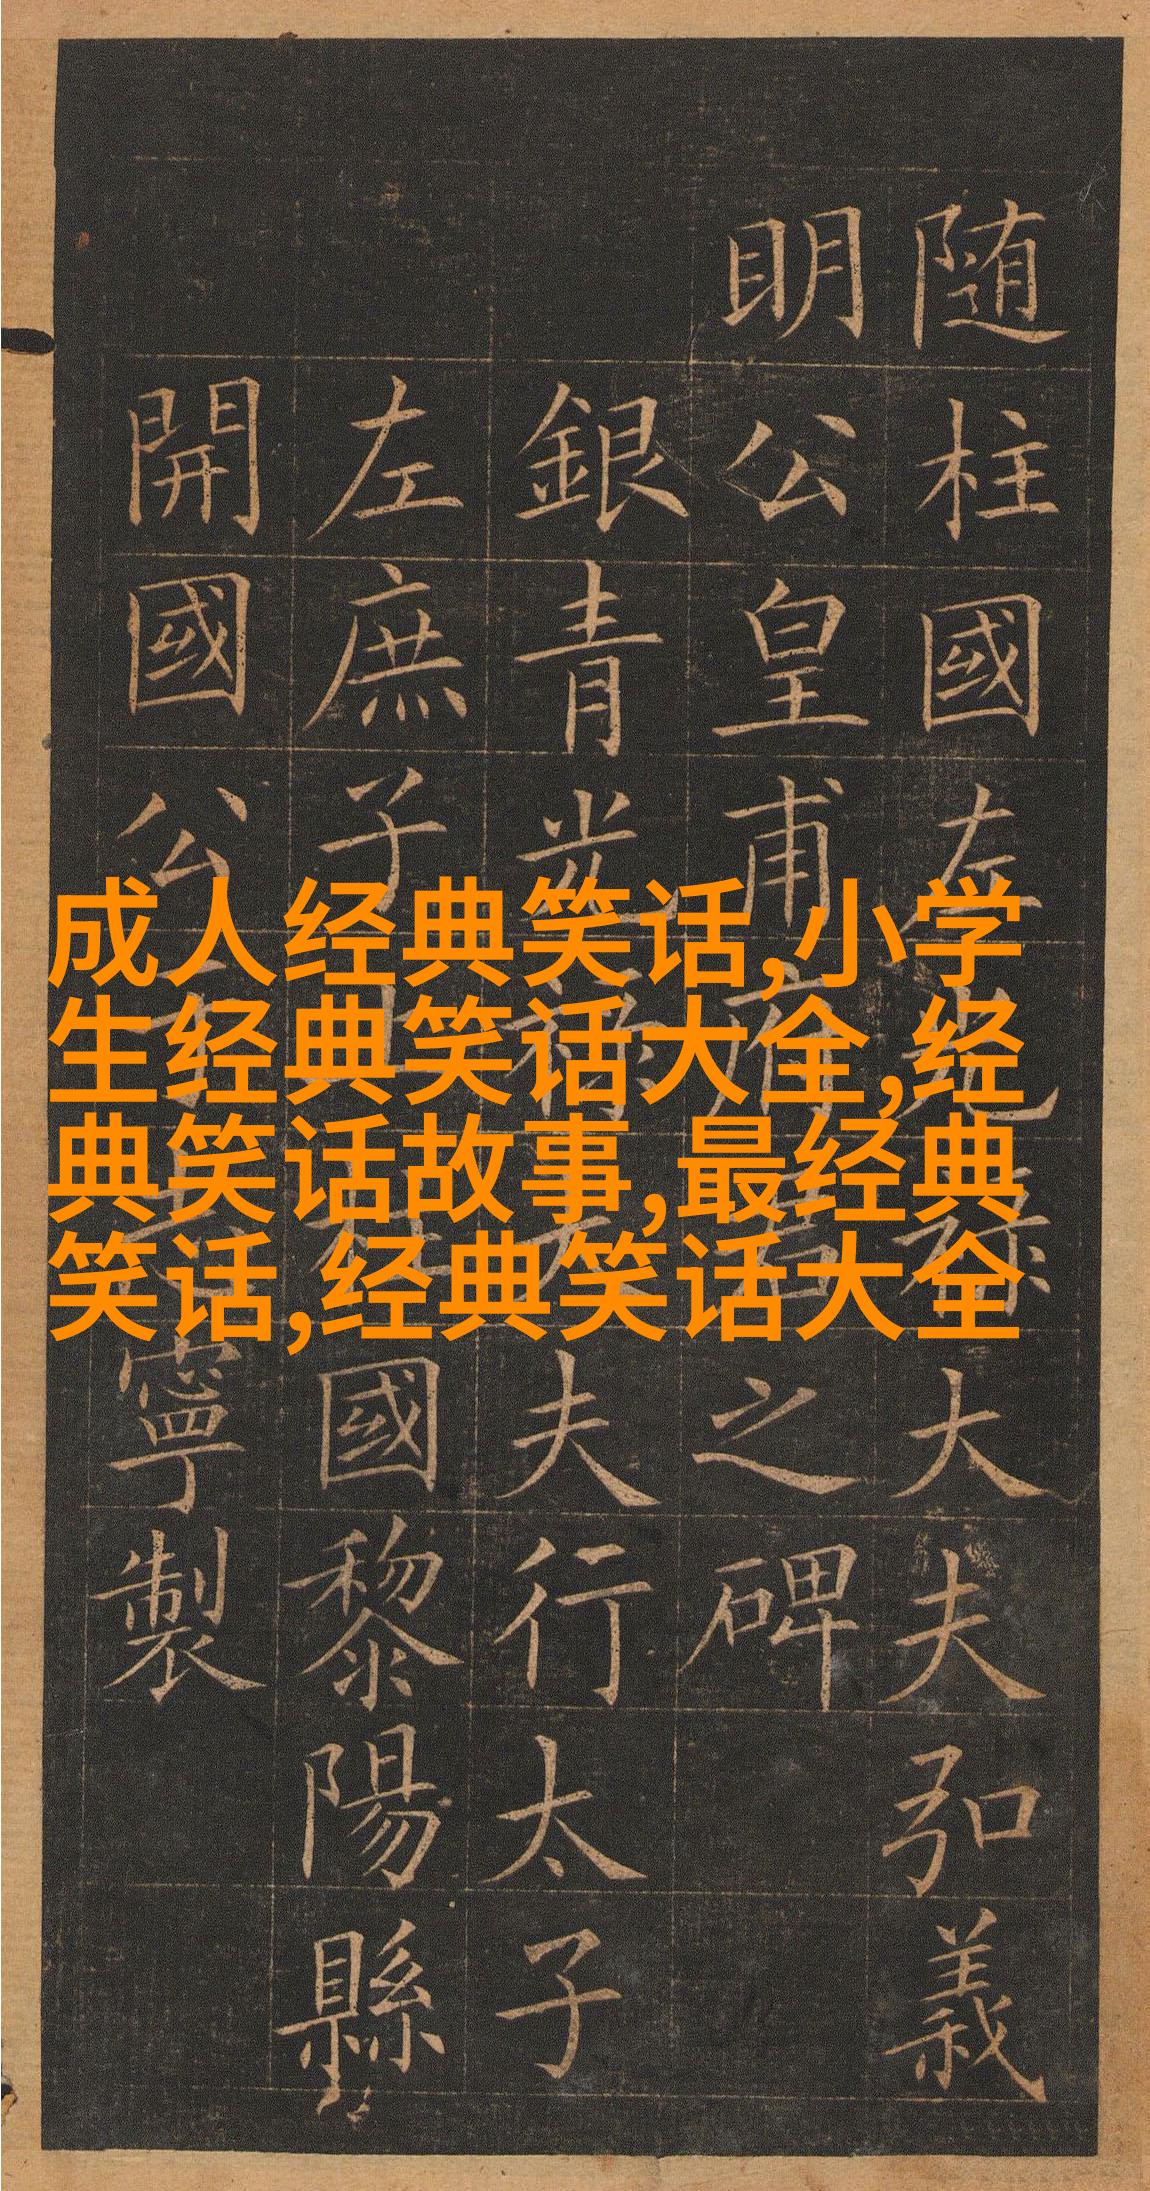 随柱國左光禄大夫弘義
明公皇甫府君之碑
銀青光禄大夫行太子
左庶子上柱國黎陽縣
開國公寧製
成人经典笑话,小学
生经典笑话大全,经
典笑话故事,最经典
笑话,经典笑话大全